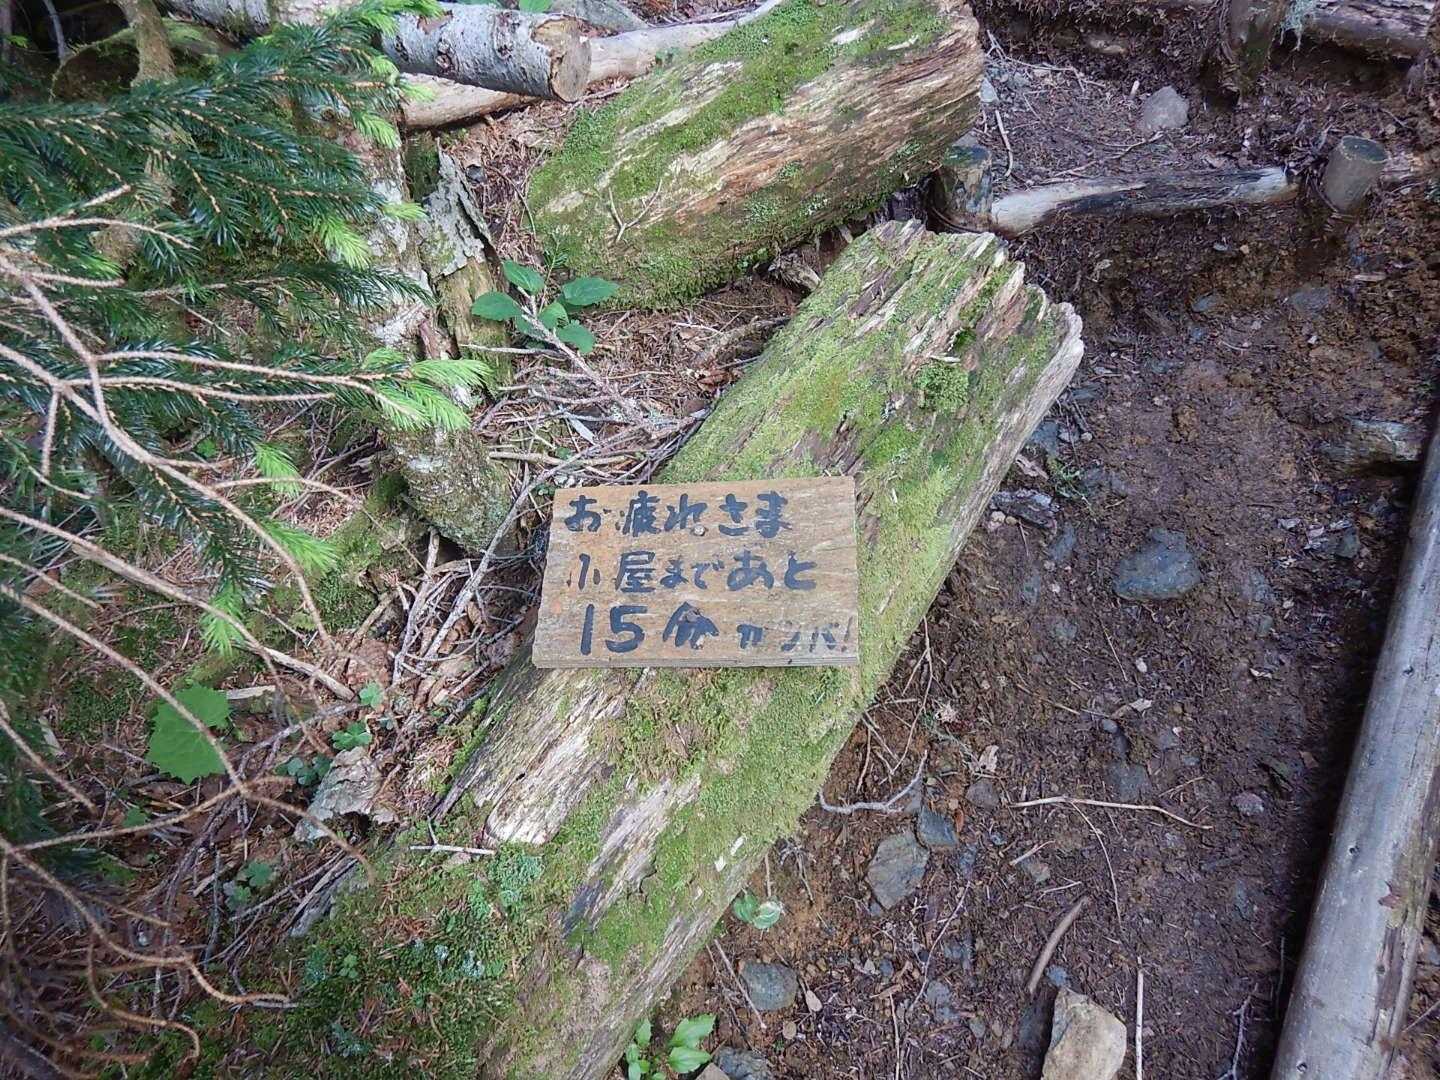 お疲れさま
小屋まであと
15分 ガンバ!